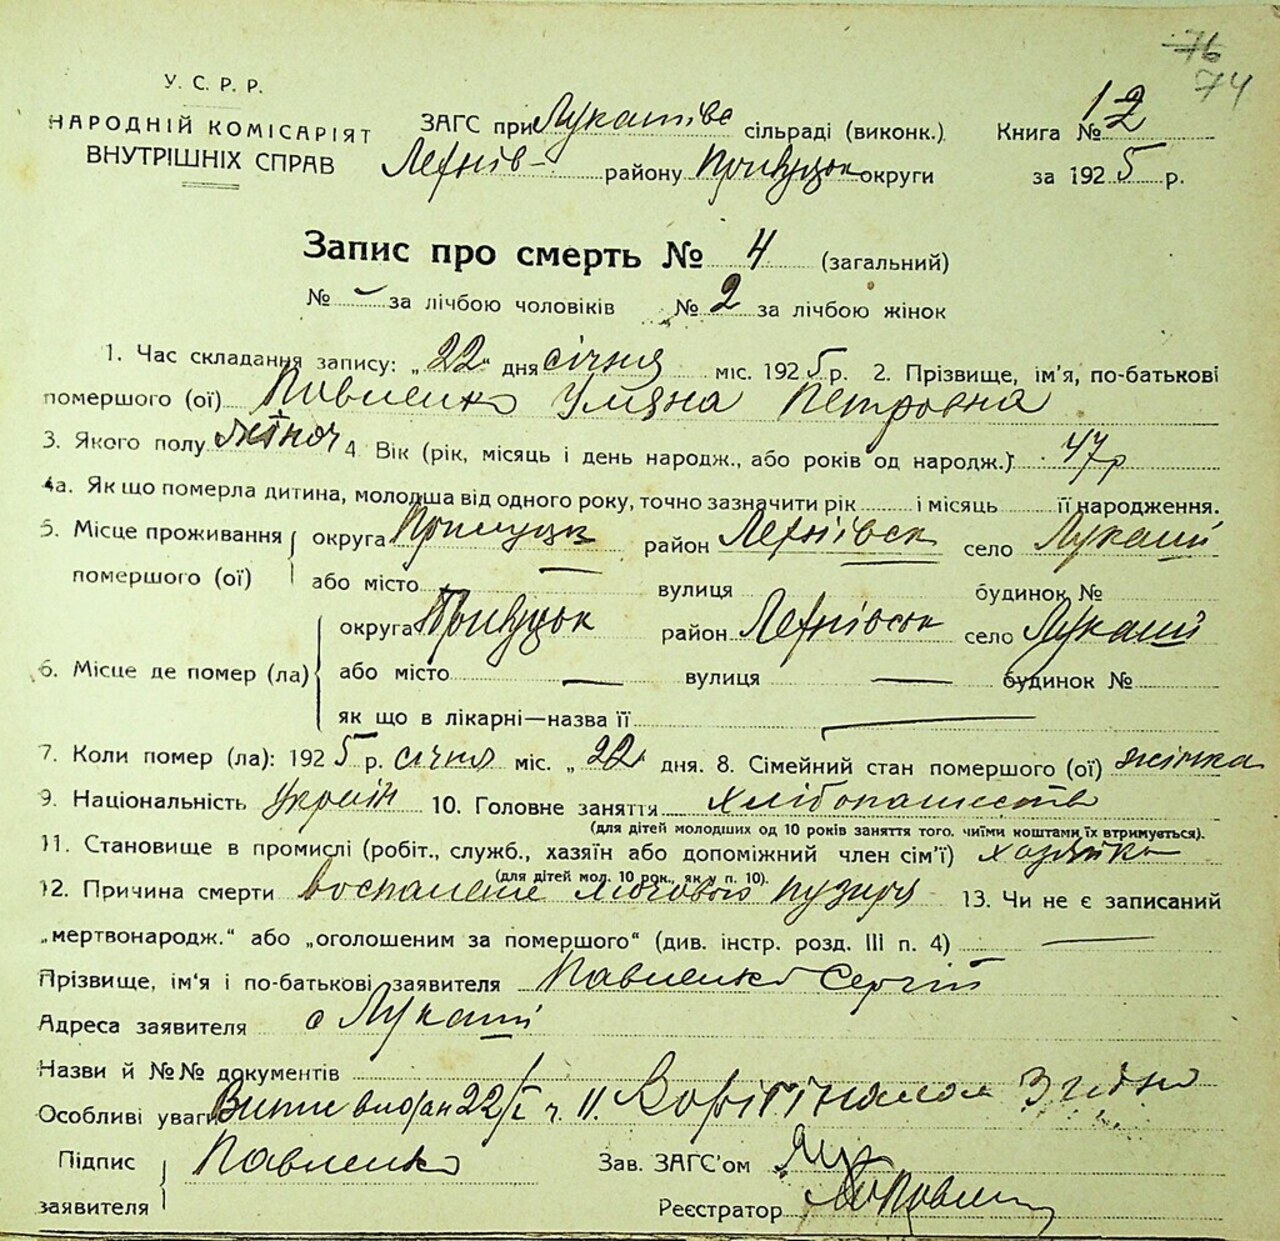 76
74
У. С. Р. Р.
НАРОДНІЙ КОМІСАРІЯТ
ВНУТРІШНІХ СПРАВ
ЗАГС при Лукашівс сільраді (виконк.) Книга № 12
Лехнів- району Прилуцьк округи за 1925 р.
Запис про смерть № 4 (загальний)
№ - за лічбою чоловіків № 2 за лічбою жінок
1. Час складання запису: „22" дня січня міс. 1925 р. 2. Прізвище, ім'я, по-батькові
помершого (ої) Павленко Уляна Петровна
3. Якого полу жіноч 4. Вік (рік, місяць і день народж., або років од народж.) 47 р
4а. Як що померла дитина, молодша від одного року, точно зазначити рік і місяць її народження.
5. Місце проживання помершого (ої) округа Прилуцьк район Лехнівськ село Лукаші
або місто — вулиця — будинок №
6. Місце де помер (ла) округа Прилуцьк район Лехнівськ село Лукаші
або місто — вулиця — будинок №
як що в лікарні—назва її —
7. Коли помер (ла): 1925 р. січня міс. „22" дня. 8. Сімейний стан помершого (ої) жінка
9. Національність Україн 10. Головне заняття хлібопашеств
(для дітей молодших од 10 років заняття того, чиїми коштами їх втримується).
11. Становище в промислі (робіт., служб., хазяїн або допоміжний член сім'ї) хозяйка
(для дітей мол. 10 рок., як у п. 10).
12. Причина смерти воспаление мочового пузиря 13. Чи не є записаний
„мертвонародж." або „оголошеним за помершого" (див. інстр. розд. III п. 4) —
Прізвище, ім'я і по-батькові заявителя Павленко Сергій
Адреса заявителя с Лукаші
Назви й №№ документів
Особливі уваги Витяг видан 22/I ч. 11. З орігіналом Згідно
Підпис заявителя Павленко Зав. ЗАГС'ом
Реєстратор